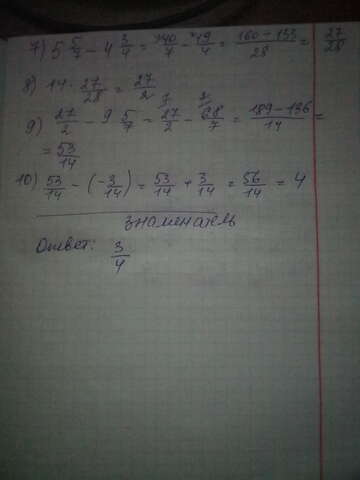 7) 5 5/7 - 4 3/4 = 40/7 - 19/4 = (160 - 133)/28 = 27/28
8) 14 · 27/28 = 27/2
9) 27/2 - 9 5/7 = 27/2 - 68/7 = (189 - 136)/14 =
= 53/14
10) 53/14 - (-3/14) = 53/14 + 3/14 = 56/14 = 4
знаменатель
Ответ: 3/4